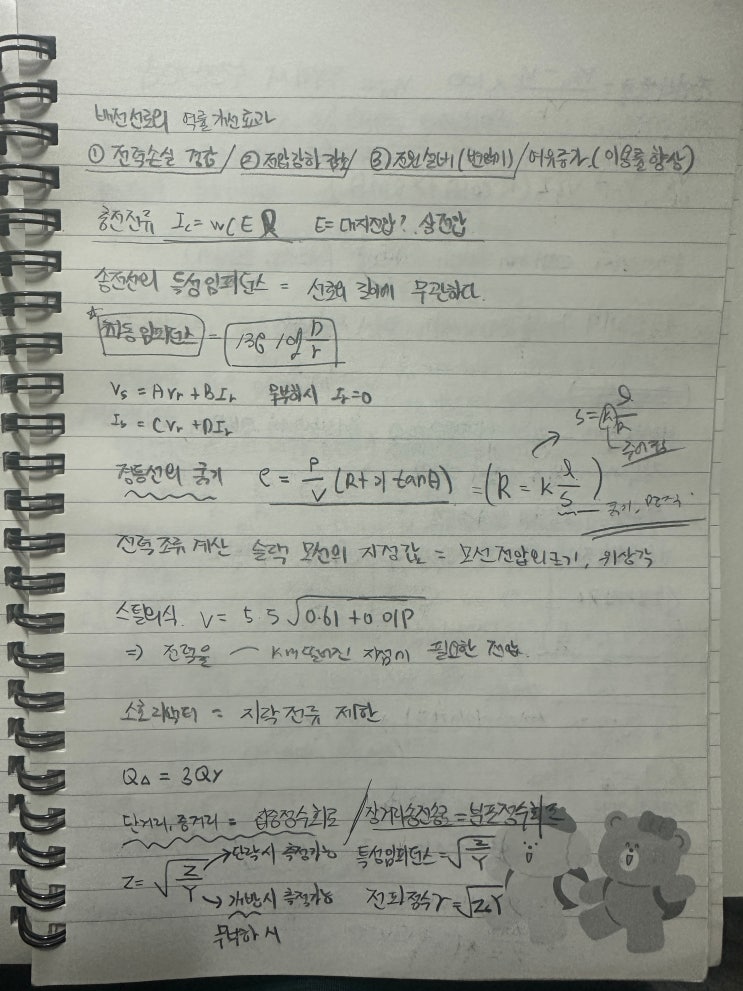 배전선로의 역률개선효과
① 전력손실 경감 / ② 전압강하 감소 / ③ 전원설비(변압기) / 여유증가 (이용률 향상)
충전전류 Ic = wCEl E = 대지전압? 상전압
송전선의 특성임피던스 = 선로의 길이에 무관하다.
☆ 파동임피던스 = 138 log D/r
Vs = AVr + BIr 무부하시 Ir = 0
Is = CVr + DIr
S = k l/R
주어짐
경동선의 굵기 e = P/V (R + x tanθ) = (R = k l/S)
굵기, 단면적.
전력조류 계산 슬랙 모선의 지정값 = 모선전압의 크기, 위상각
스틸의식. V = 5.5 √0.6l + 0.01P
⇒ 전력을 ~ km 떨어진 지점에 필요한 전압.
소호리액터 = 지락전류 제한
QΔ = 3QY
단거리, 중거리 = 집중정수회로 / 장거리송전선로 = 분포정수회로
Z = √Z/Y → 단락시 측정가능 특성임피던스 = √Z/Y
→ 개방시 측정가능 전파정수 γ = √ZY
무부하 시